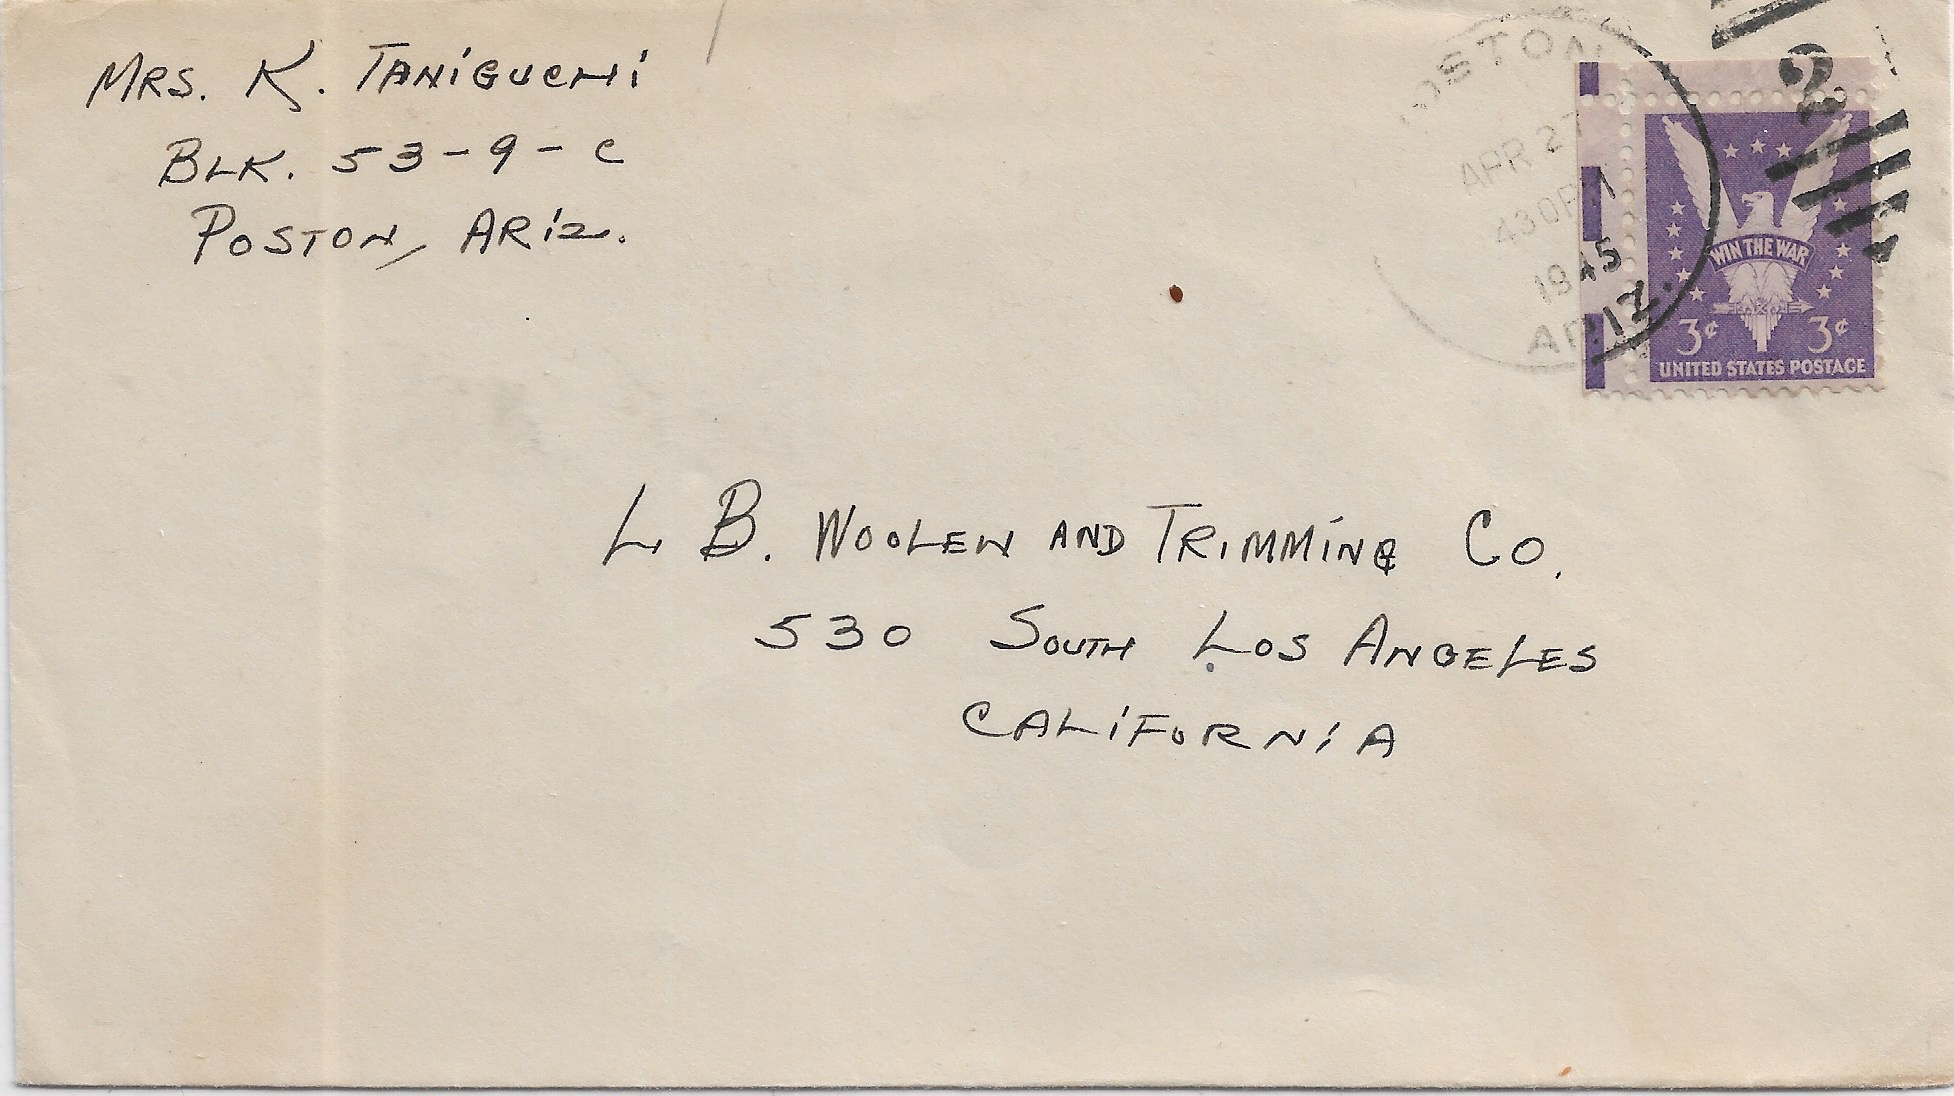 MRS. K. TANIGUCHI
BLK. 53-9-C
POSTON, ARIZ.
POSTON
APR 27
430PM
1945
ARIZ.
2
WIN THE WAR
3¢ 3¢
UNITED STATES POSTAGE
L B. WOOLEN AND TRIMMING CO.
530 SOUTH LOS ANGELES
CALIFORNIA